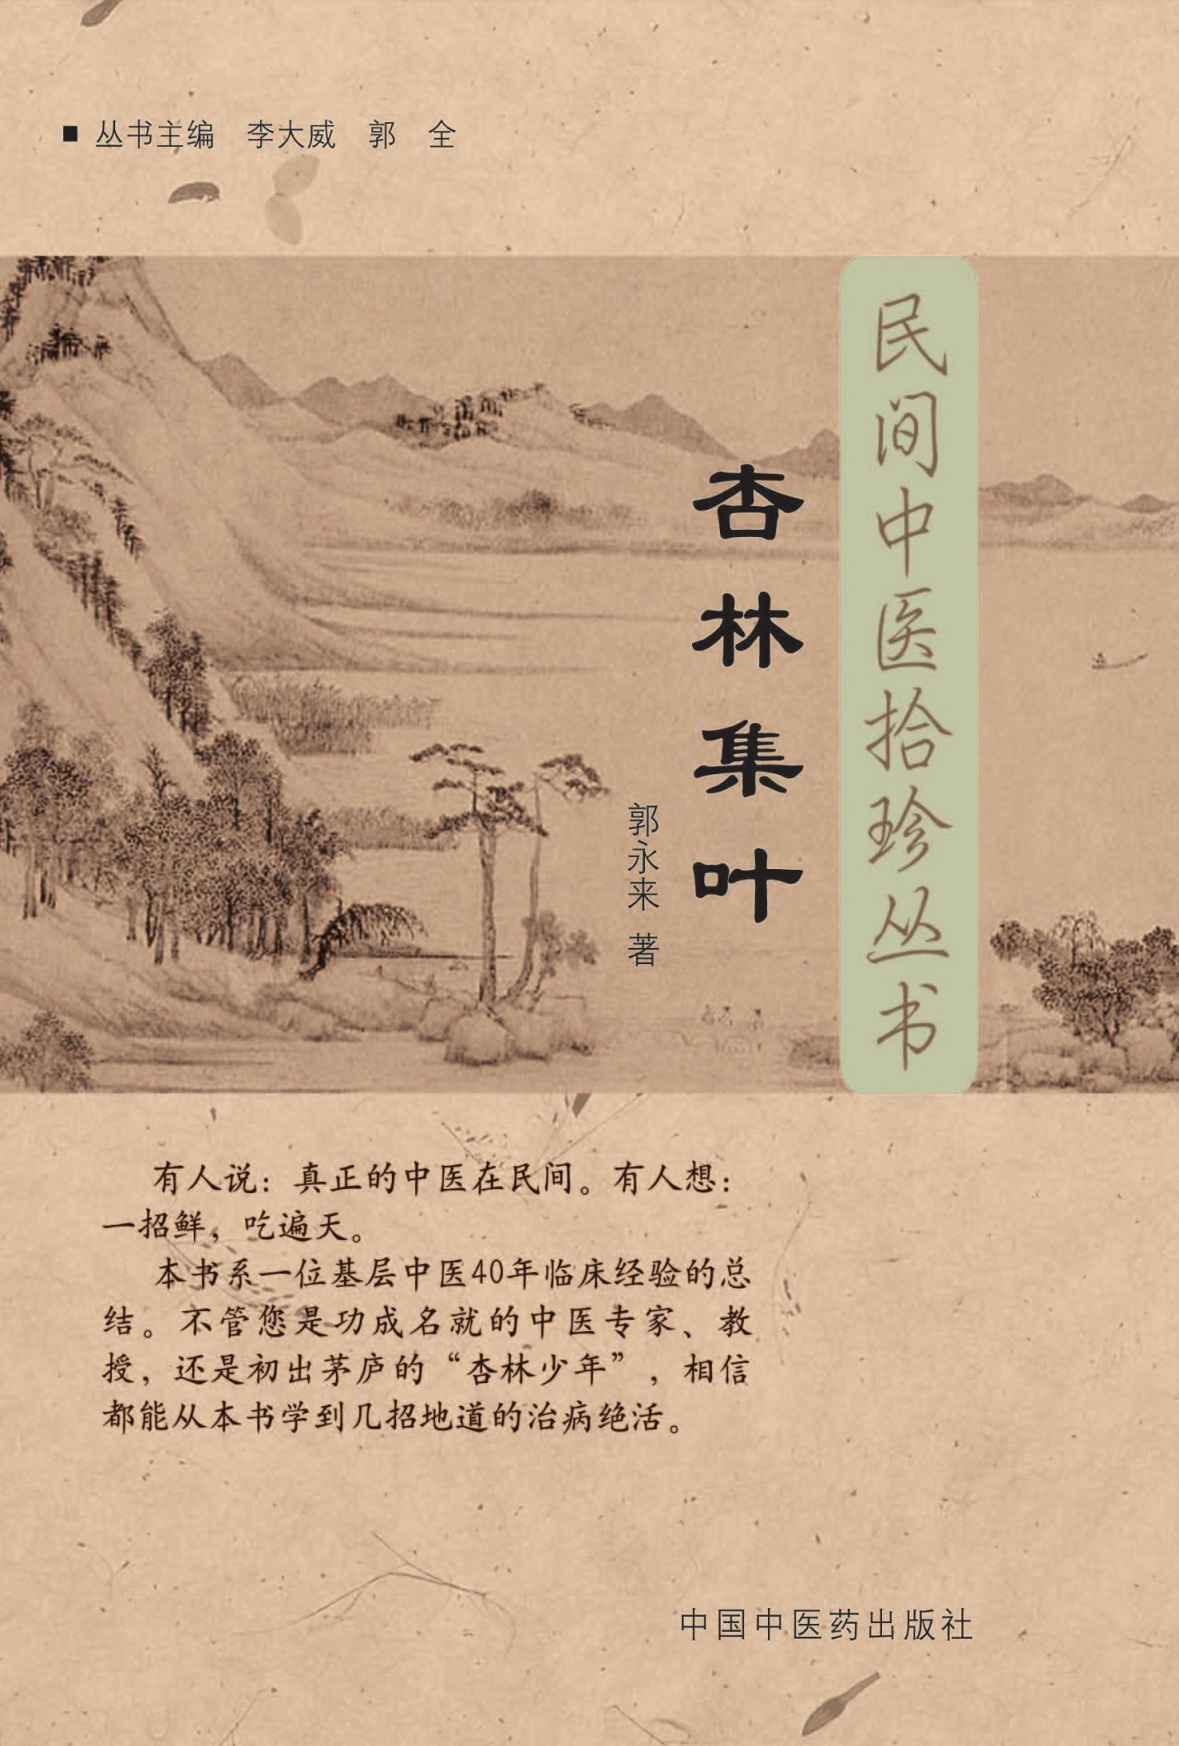 ■ 丛书主编　李大威　郭　全
民间中医拾珍丛书
杏林集叶
郭永来 著
有人说：真正的中医在民间。有人想：
一招鲜，吃遍天。
本书系一位基层中医40年临床经验的总
结。不管您是功成名就的中医专家、教
授，还是初出茅庐的“杏林少年”，相信
都能从本书学到几招地道的治病绝活。
中国中医药出版社